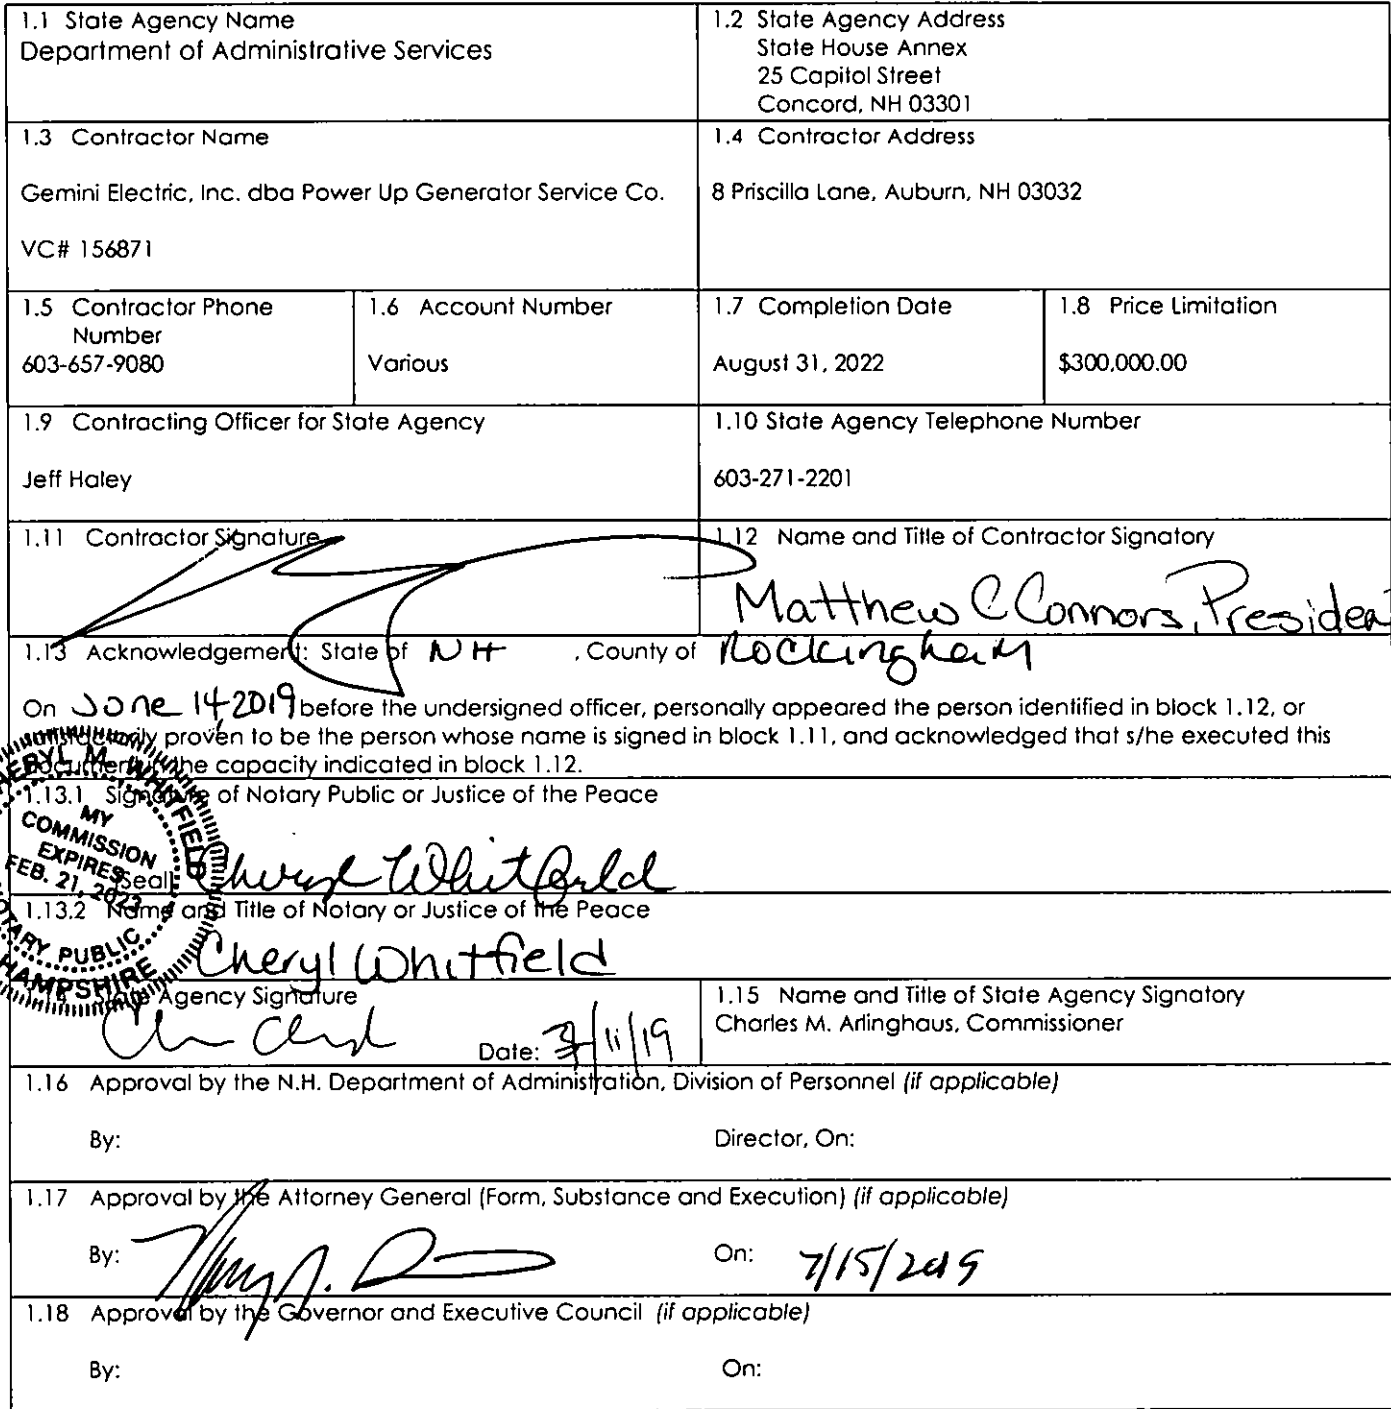 1.1 State Agency Name
Department of Administrative Services
1.2 State Agency Address
State House Annex
25 Capitol Street
Concord, NH 03301
1.3 Contractor Name
Gemini Electric, Inc. dba Power Up Generator Service Co.
VC# 156871
1.4 Contractor Address
8 Priscilla Lane, Auburn, NH 03032
1.5 Contractor Phone
Number
603-657-9080
1.6 Account Number
Various
1.7 Completion Date
August 31, 2022
1.8 Price Limitation
$300,000.00
1.9 Contracting Officer for State Agency
Jeff Haley
1.10 State Agency Telephone Number
603-271-2201
1.11 Contractor Signature
1.12 Name and Title of Contractor Signatory
Matthew C Connors, Presiden
1.13 Acknowledgement: State of NH , County of Rockingham
On June 14, 2019 before the undersigned officer, personally appeared the person identified in block 1.12, or
satisfactorily proven to be the person whose name is signed in block 1.11, and acknowledged that s/he executed this
document in the capacity indicated in block 1.12.
1.13.1 Signature of Notary Public or Justice of the Peace
ERYL M. WHITFIELD
MY
COMMISSION
EXPIRES
FEB. 21, 2023
TARY PUBLIC
HAMPSHIRE
[Seal] Cheryl Whitfield
1.13.2 Name and Title of Notary or Justice of the Peace
Cheryl Whitfield
State Agency Signature
Date: 7/11/19
1.15 Name and Title of State Agency Signatory
Charles M. Arlinghaus, Commissioner
1.16 Approval by the N.H. Department of Administration, Division of Personnel (if applicable)
By: Director, On:
1.17 Approval by the Attorney General (Form, Substance and Execution) (if applicable)
By: On: 7/15/2019
1.18 Approval by the Governor and Executive Council (if applicable)
By: On: